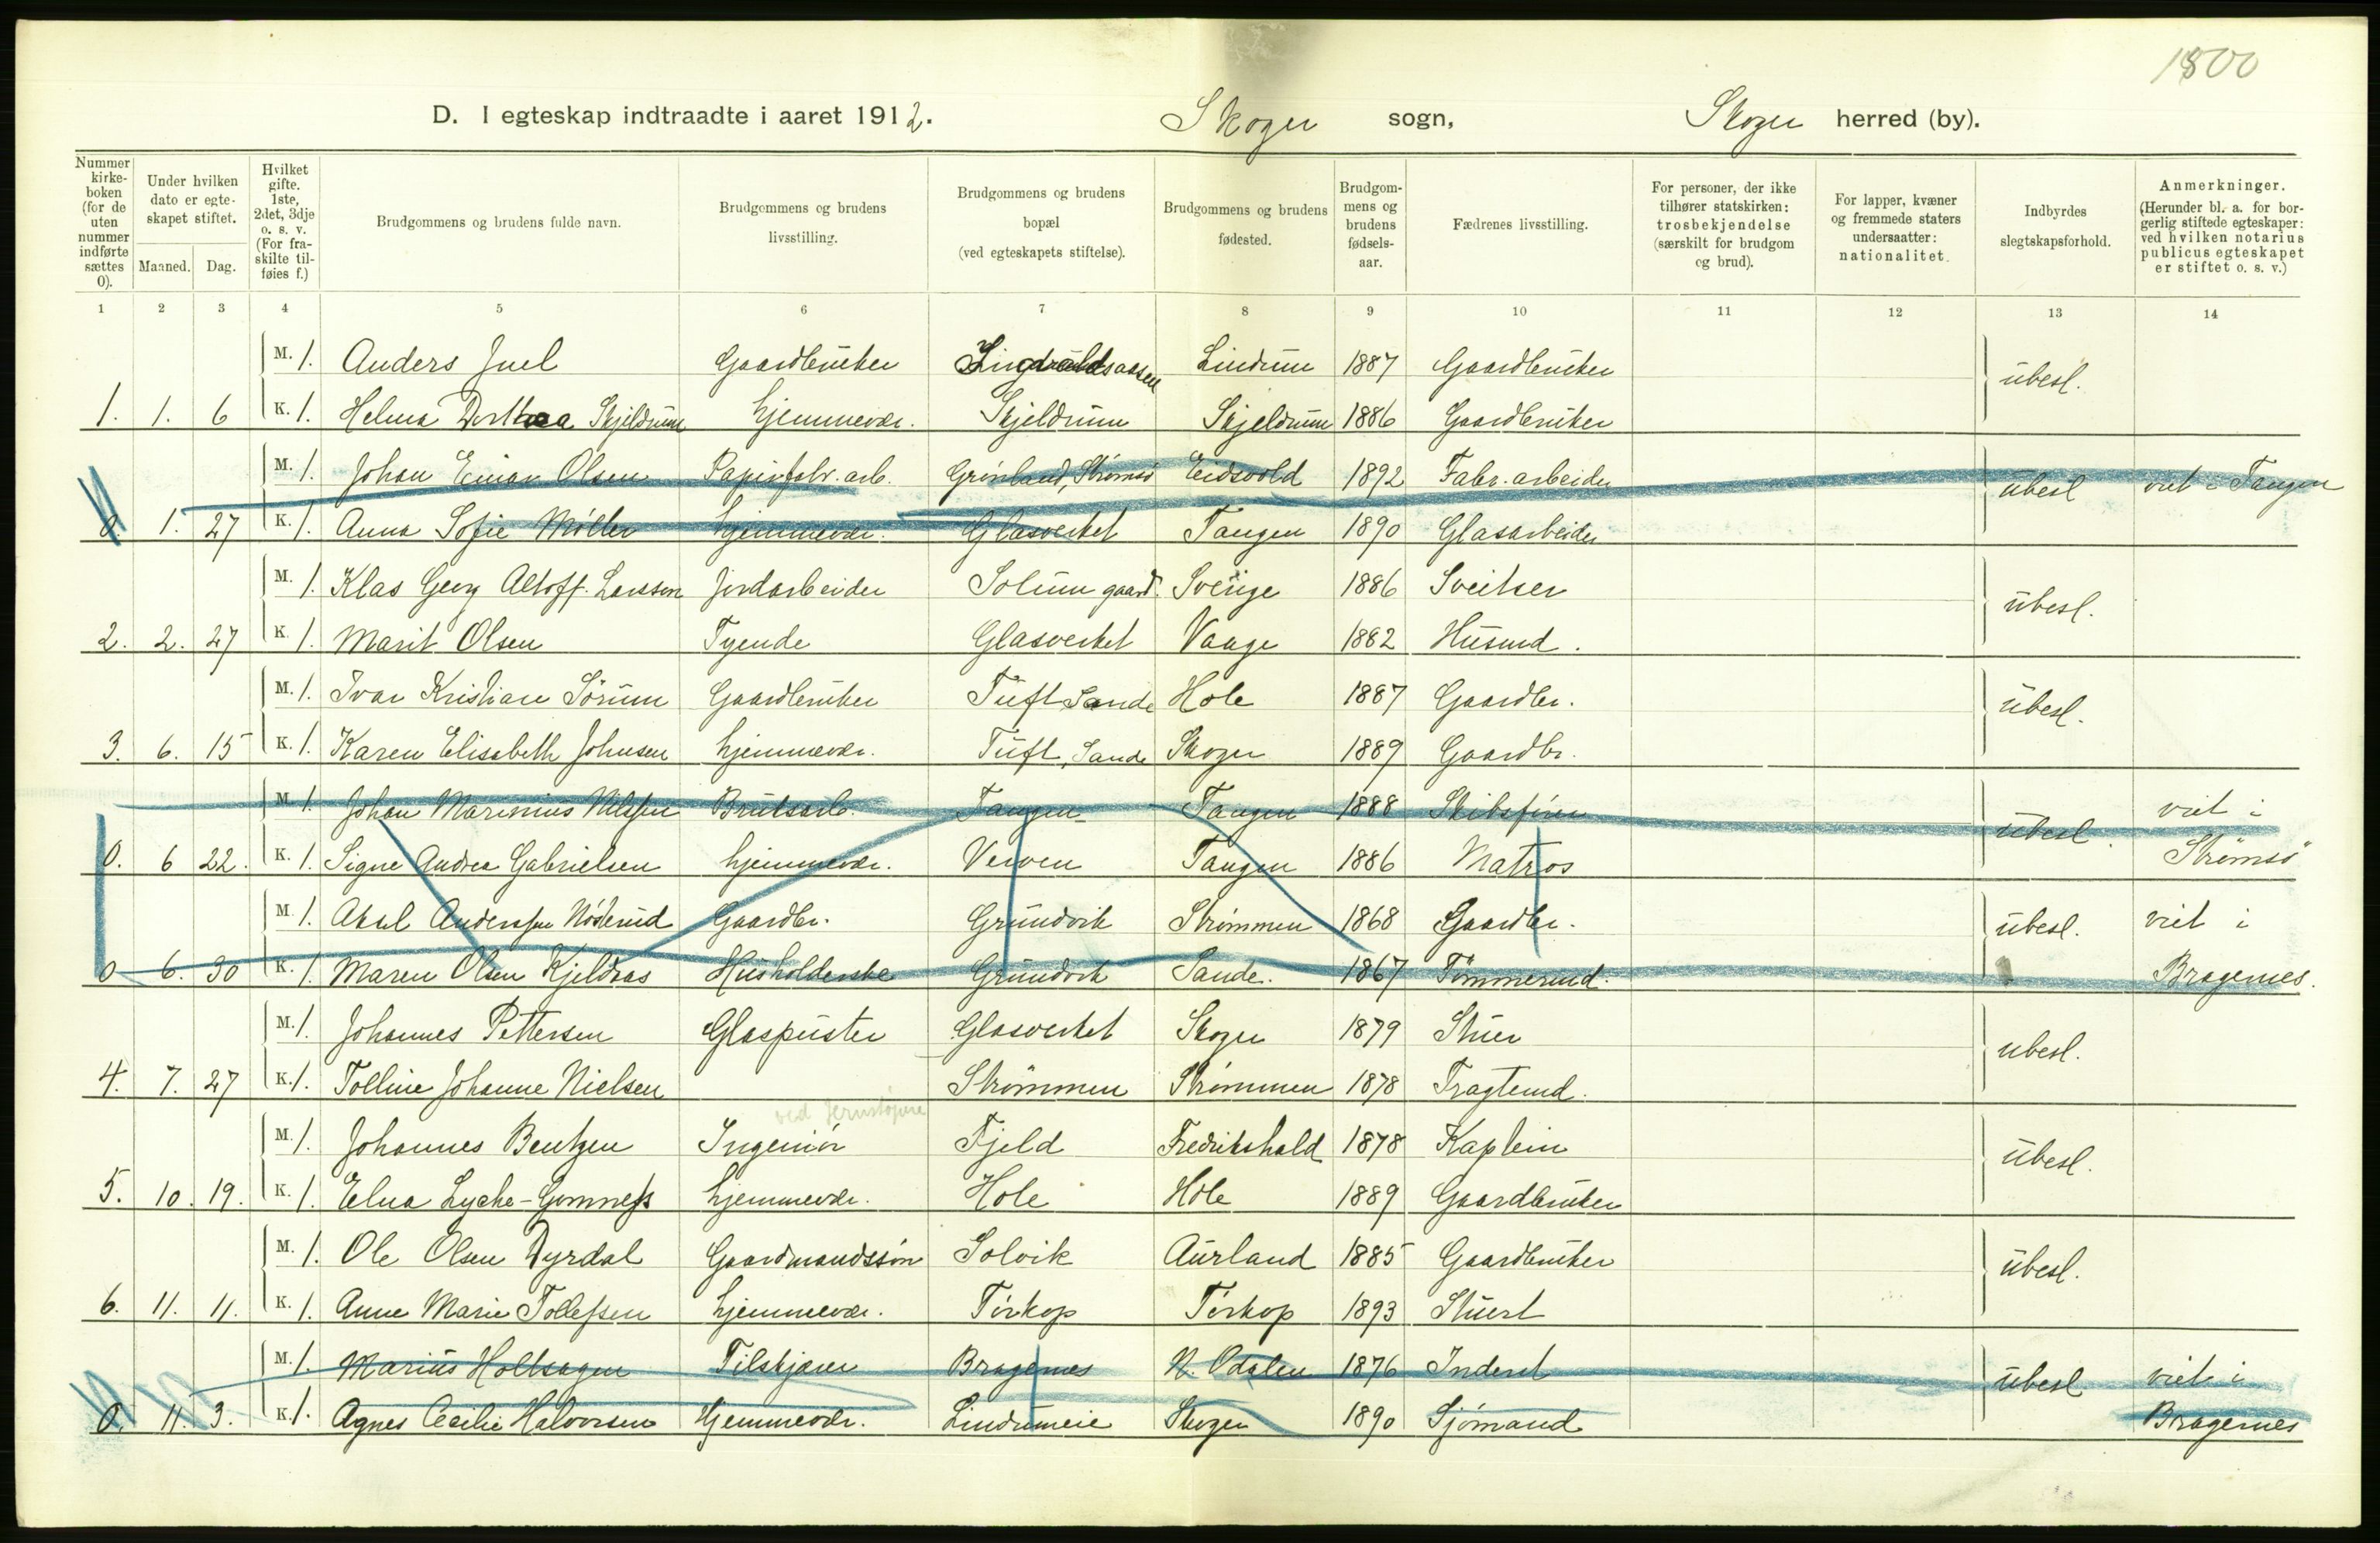 1800
D. I egteskap indtraadte i aaret 1912. Skoger sogn, Skoger herred (by).
Nummer kirkeboken (for de uten nummer indførte sættes 0). Under hvilken dato er egteskapet stiftet. Maaned. Dag. Hvilket gifte. 1ste, 2det, 3dje o. s. v. (For fraskilte tilføies f.) Brudgommens og brudens fulde navn. Brudgommens og brudens livsstilling. Brudgommens og brudens bopæl (ved egteskapets stiftelse). Brudgommens og brudens fødested. Brudgommens og brudens fødselsaar. Fædrenes livsstilling. For personer, der ikke tilhører statskirken: trosbekjendelse (særskilt for brudgom og brud). For lapper, kvæner og fremmede staters undersaatter: nationalitet. Indbyrdes slegtskapsforhold. Anmerkninger. (Herunder bl. a. for borgerlig stiftede egteskaper: ved hvilken notarius publicus egteskapet er stiftet o. s. v.)
1 2 3 4 5 6 7 8 9 10 11 12 13 14
M. 1. Anders Juel Gaardbruker Lindrum 1887 Gaardbruker ubesl.
1. 1. 6 K. 1. Helma Dorthea Skjeldrum hjemmevær. Skjeldrum Skjeldrum 1886 Gaardbruker
M. 1. Johan Einar Olsen Papirfabr. arb. Grønland, Strømsø Eidsvold 1892 Fabr. arbeider ubesl viet i Tangen
0. 1. 27 K. 1. Anna Sofie Møller hjemmevær. Glasverket Tangen 1890 Glasarbeider
M. 1. Klas Georg Altoff. Larsson Jordarbeider Solum gaard. Sverige 1886 Sveitser ubesl.
2. 2. 27 K. 1. Marit Olsen Tyende Glasverket Vaage 1882 Husmd.
M. 1. Ivar Kristian Sørum Gaardbruker Tuft Sande Hole 1887 Gaardbr. ubesl.
3. 6. 15 K. 1. Karen Elisabeth Johnsen hjemmevær. Tuft, Sande Skoger 1889 Gaardbr.
M. 1. Johan Marinius Nilsen Bruksarb. Tangen Tangen 1888 Skibsfører ubesl. viet i
0. 6 22. K. 1. Signe Andrea Gabrielsen hjemmevær. Verven Tangen 1886 Matros Strømsø
M. 1. Aksel Anderssen Nøsterud Gaardbr. Grundvik Strømmen 1868 Gaardbr. ubesl. viet i
0 6. 30 K. 1. Maren Olsen Kjeldsas Husholderske Grundvik Sande. 1867 Tømmermd. Bragernes.
M. 1. Johannes Pettersen Glaspuster Glasverket Skoger 1879 Stuer ubesl.
4. 7. 27 K. 1. Tolline Johanne Nielsen Strømmen Strømmen 1878 Fragtemd.
ved
M. 1. Johannes Bentzen Ingeniør Fjeld Fredrikshald 1878 Kaptein ubesl.
5. 10. 19. K. 1. Elna Lyche-Gomness hjemmevær. Hole Hole 1889 Gaardbruker
M. 1. Ole Olsen Dyrdal Gaardmandssøn Solvik Aurland 1885 Gaardbruker ubesl.
6. 11. 11. K. 1. Anne Marie Tollefsen hjemmevær. Tørkop Tørkop 1893 Stuert
M. 1. Marius Holtsagen Tilskjærer Bragernes N. Odalen 1876 Inderst ubesl. viet i
0. 11. 3. K. 1. Agnes Cecilie Halvorsen Hjemmevær. Lindumeie Skoger 1890 Sjømand Bragernes